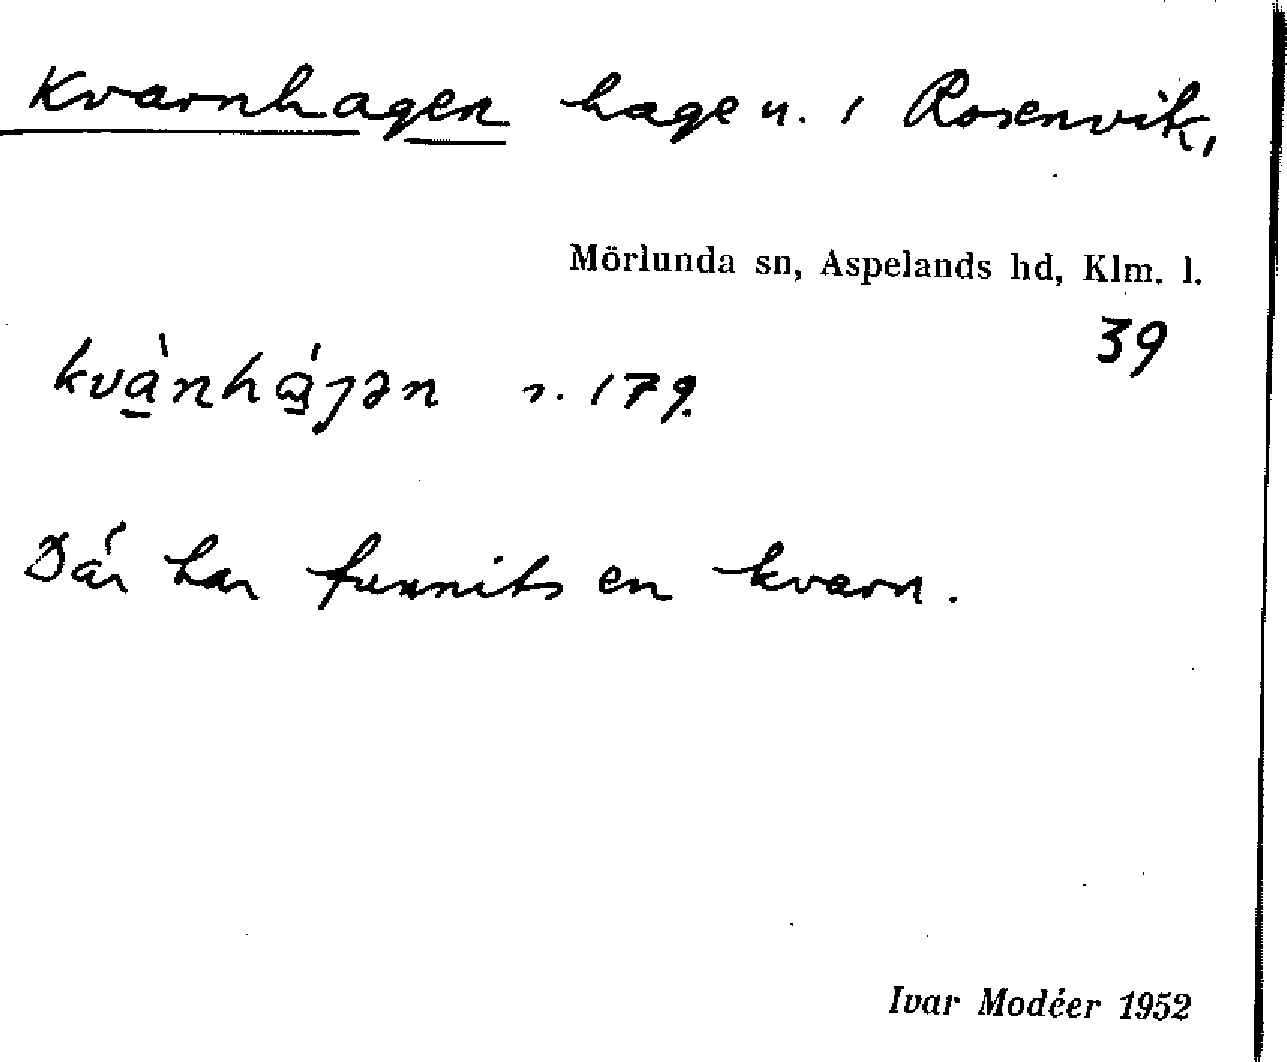 Kvarnhagen hage n. i Rosenvik,
Mörlunda sn, Aspelands hd, Klm. l.
39
kvànhájən s. 179.
Där har funnits en kvarn.
Ivar Modéer 1952